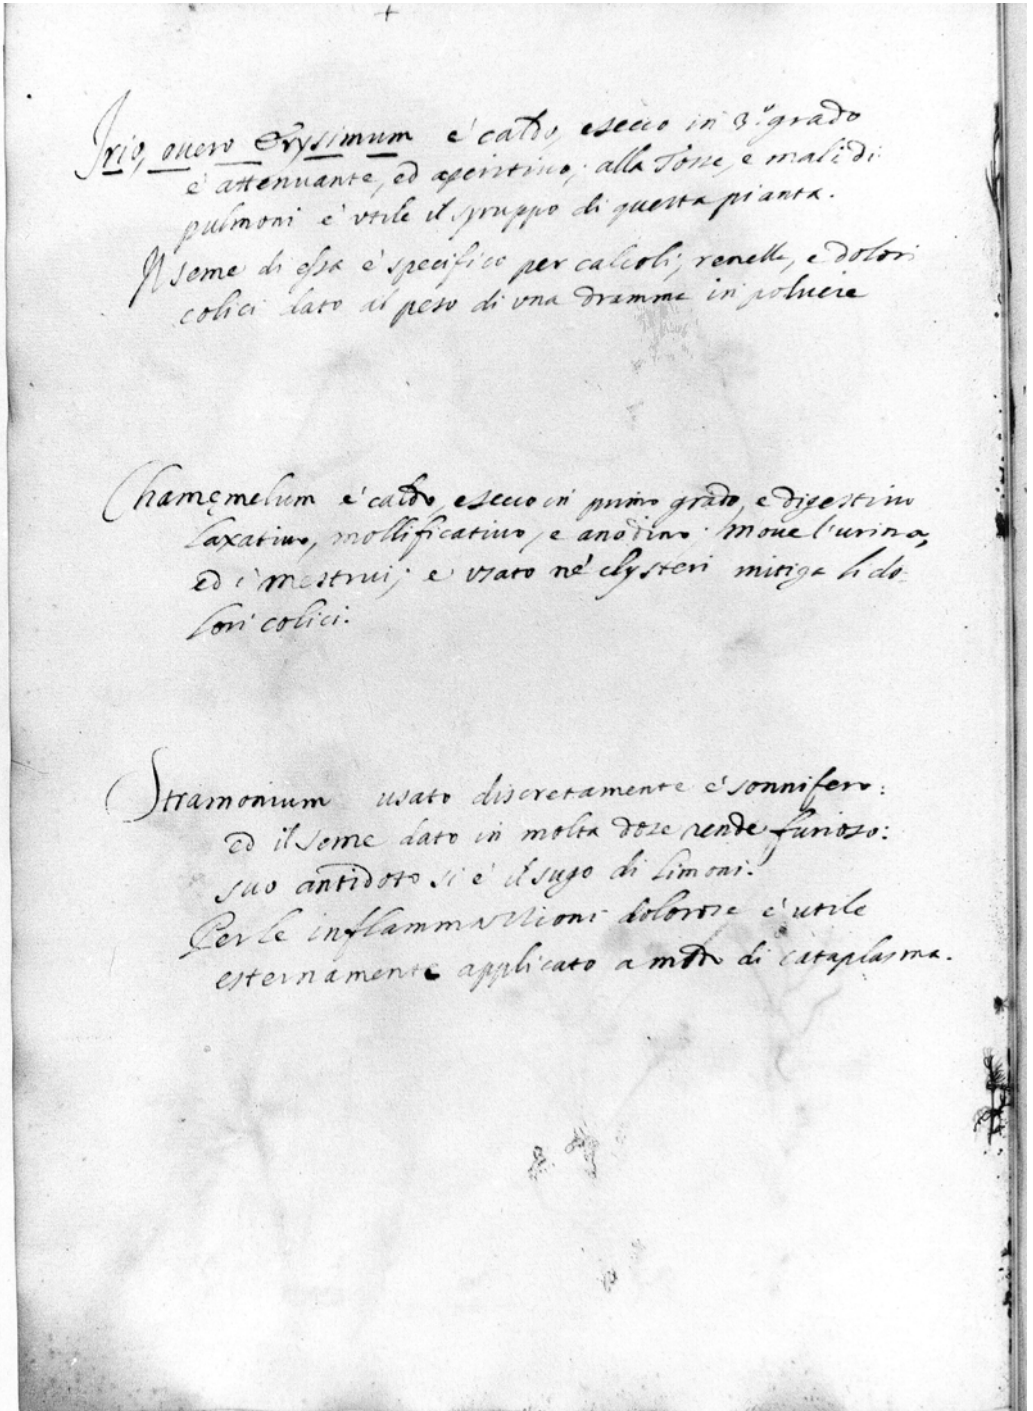 Irio, ouero Erysimum é caldo, e secco in 3.º grado
é attenuante, ed aperitiuo; alla Tosse, e mali di
pulmoni é vtile il syruppo di questa pianta.
Il seme di essa é specifico per calcoli, renelle, e dolori
colici dato al peso di vna dramma in poluere
Chamęmelum é caldo, e secco in primo grado, e digestiuo
laxatiuo, mollificatiuo, e anodino; moue l'urina,
ed i mestrui; e vsato né clysteri mitiga li do-
lori colici.
Stramonium usato discretamente é sonnifero:
ed il seme dato in molta dose rende furioso:
suo antidoto si é il sugo di limoni.
Per le inflammationi dolorose é utile
esternamente applicato a modo di cataplasma.